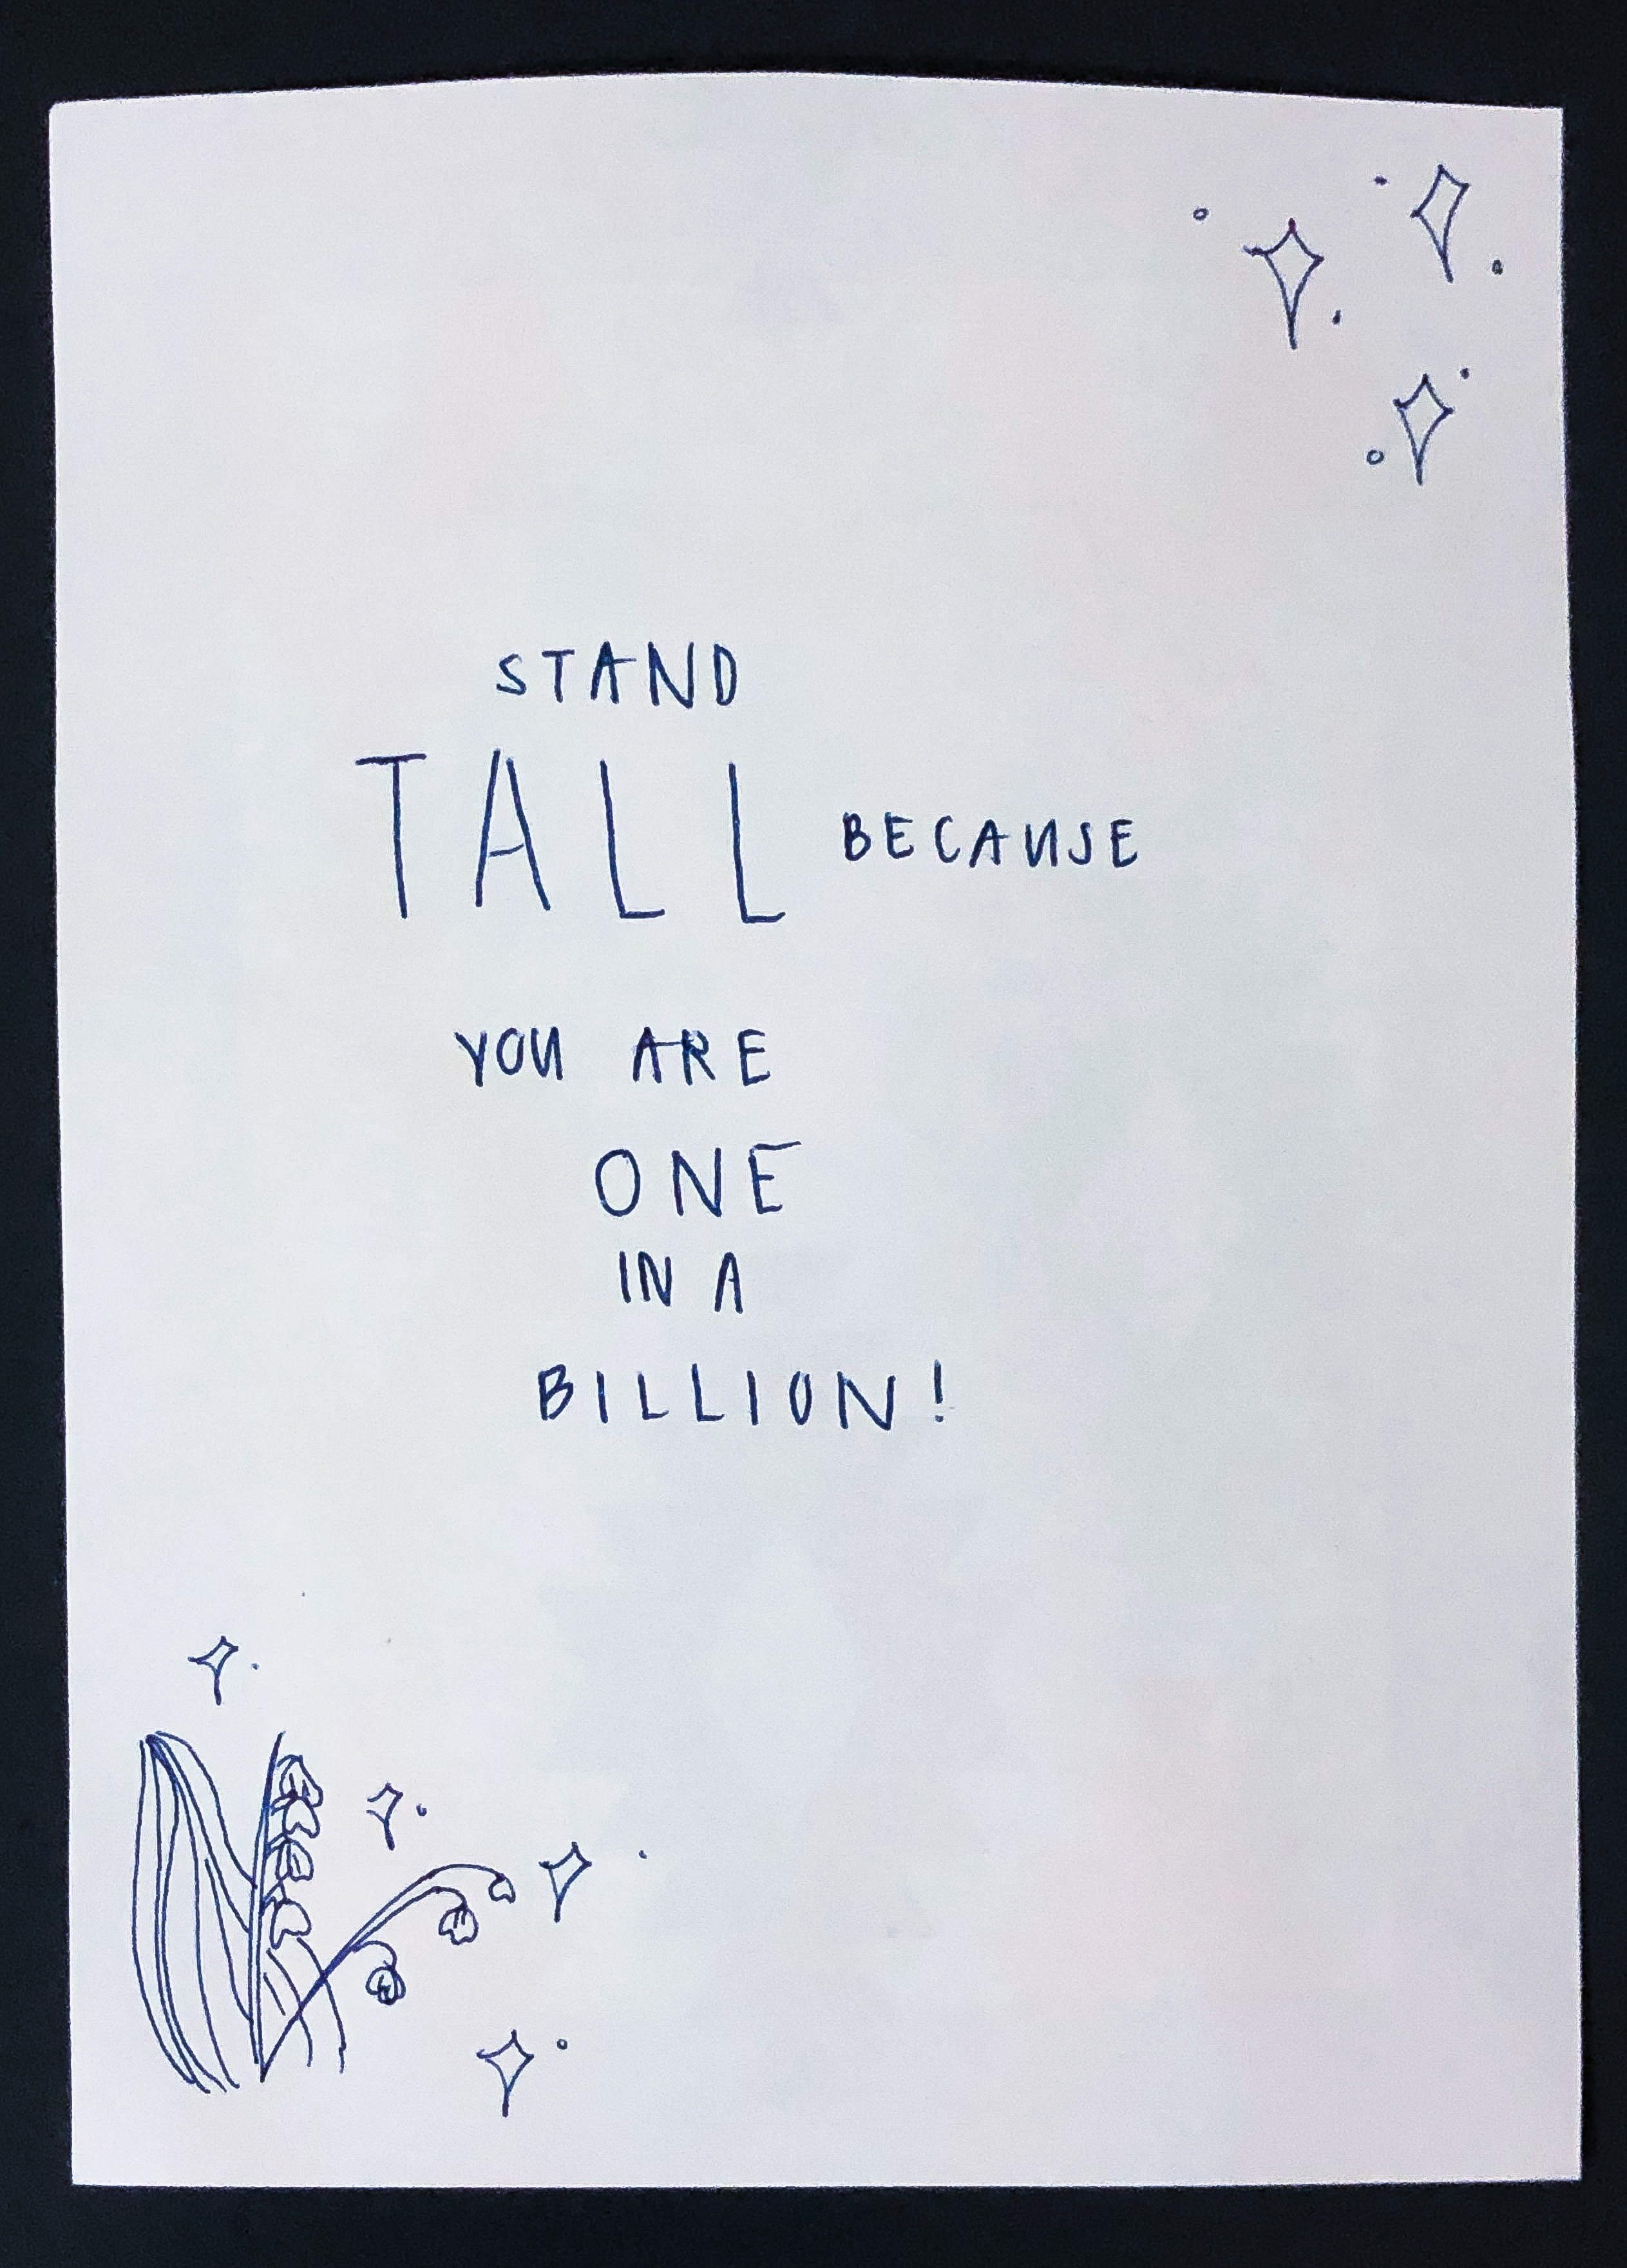 STAND
TALL BECAUSE
YOU ARE
ONE
IN A
BILLION!